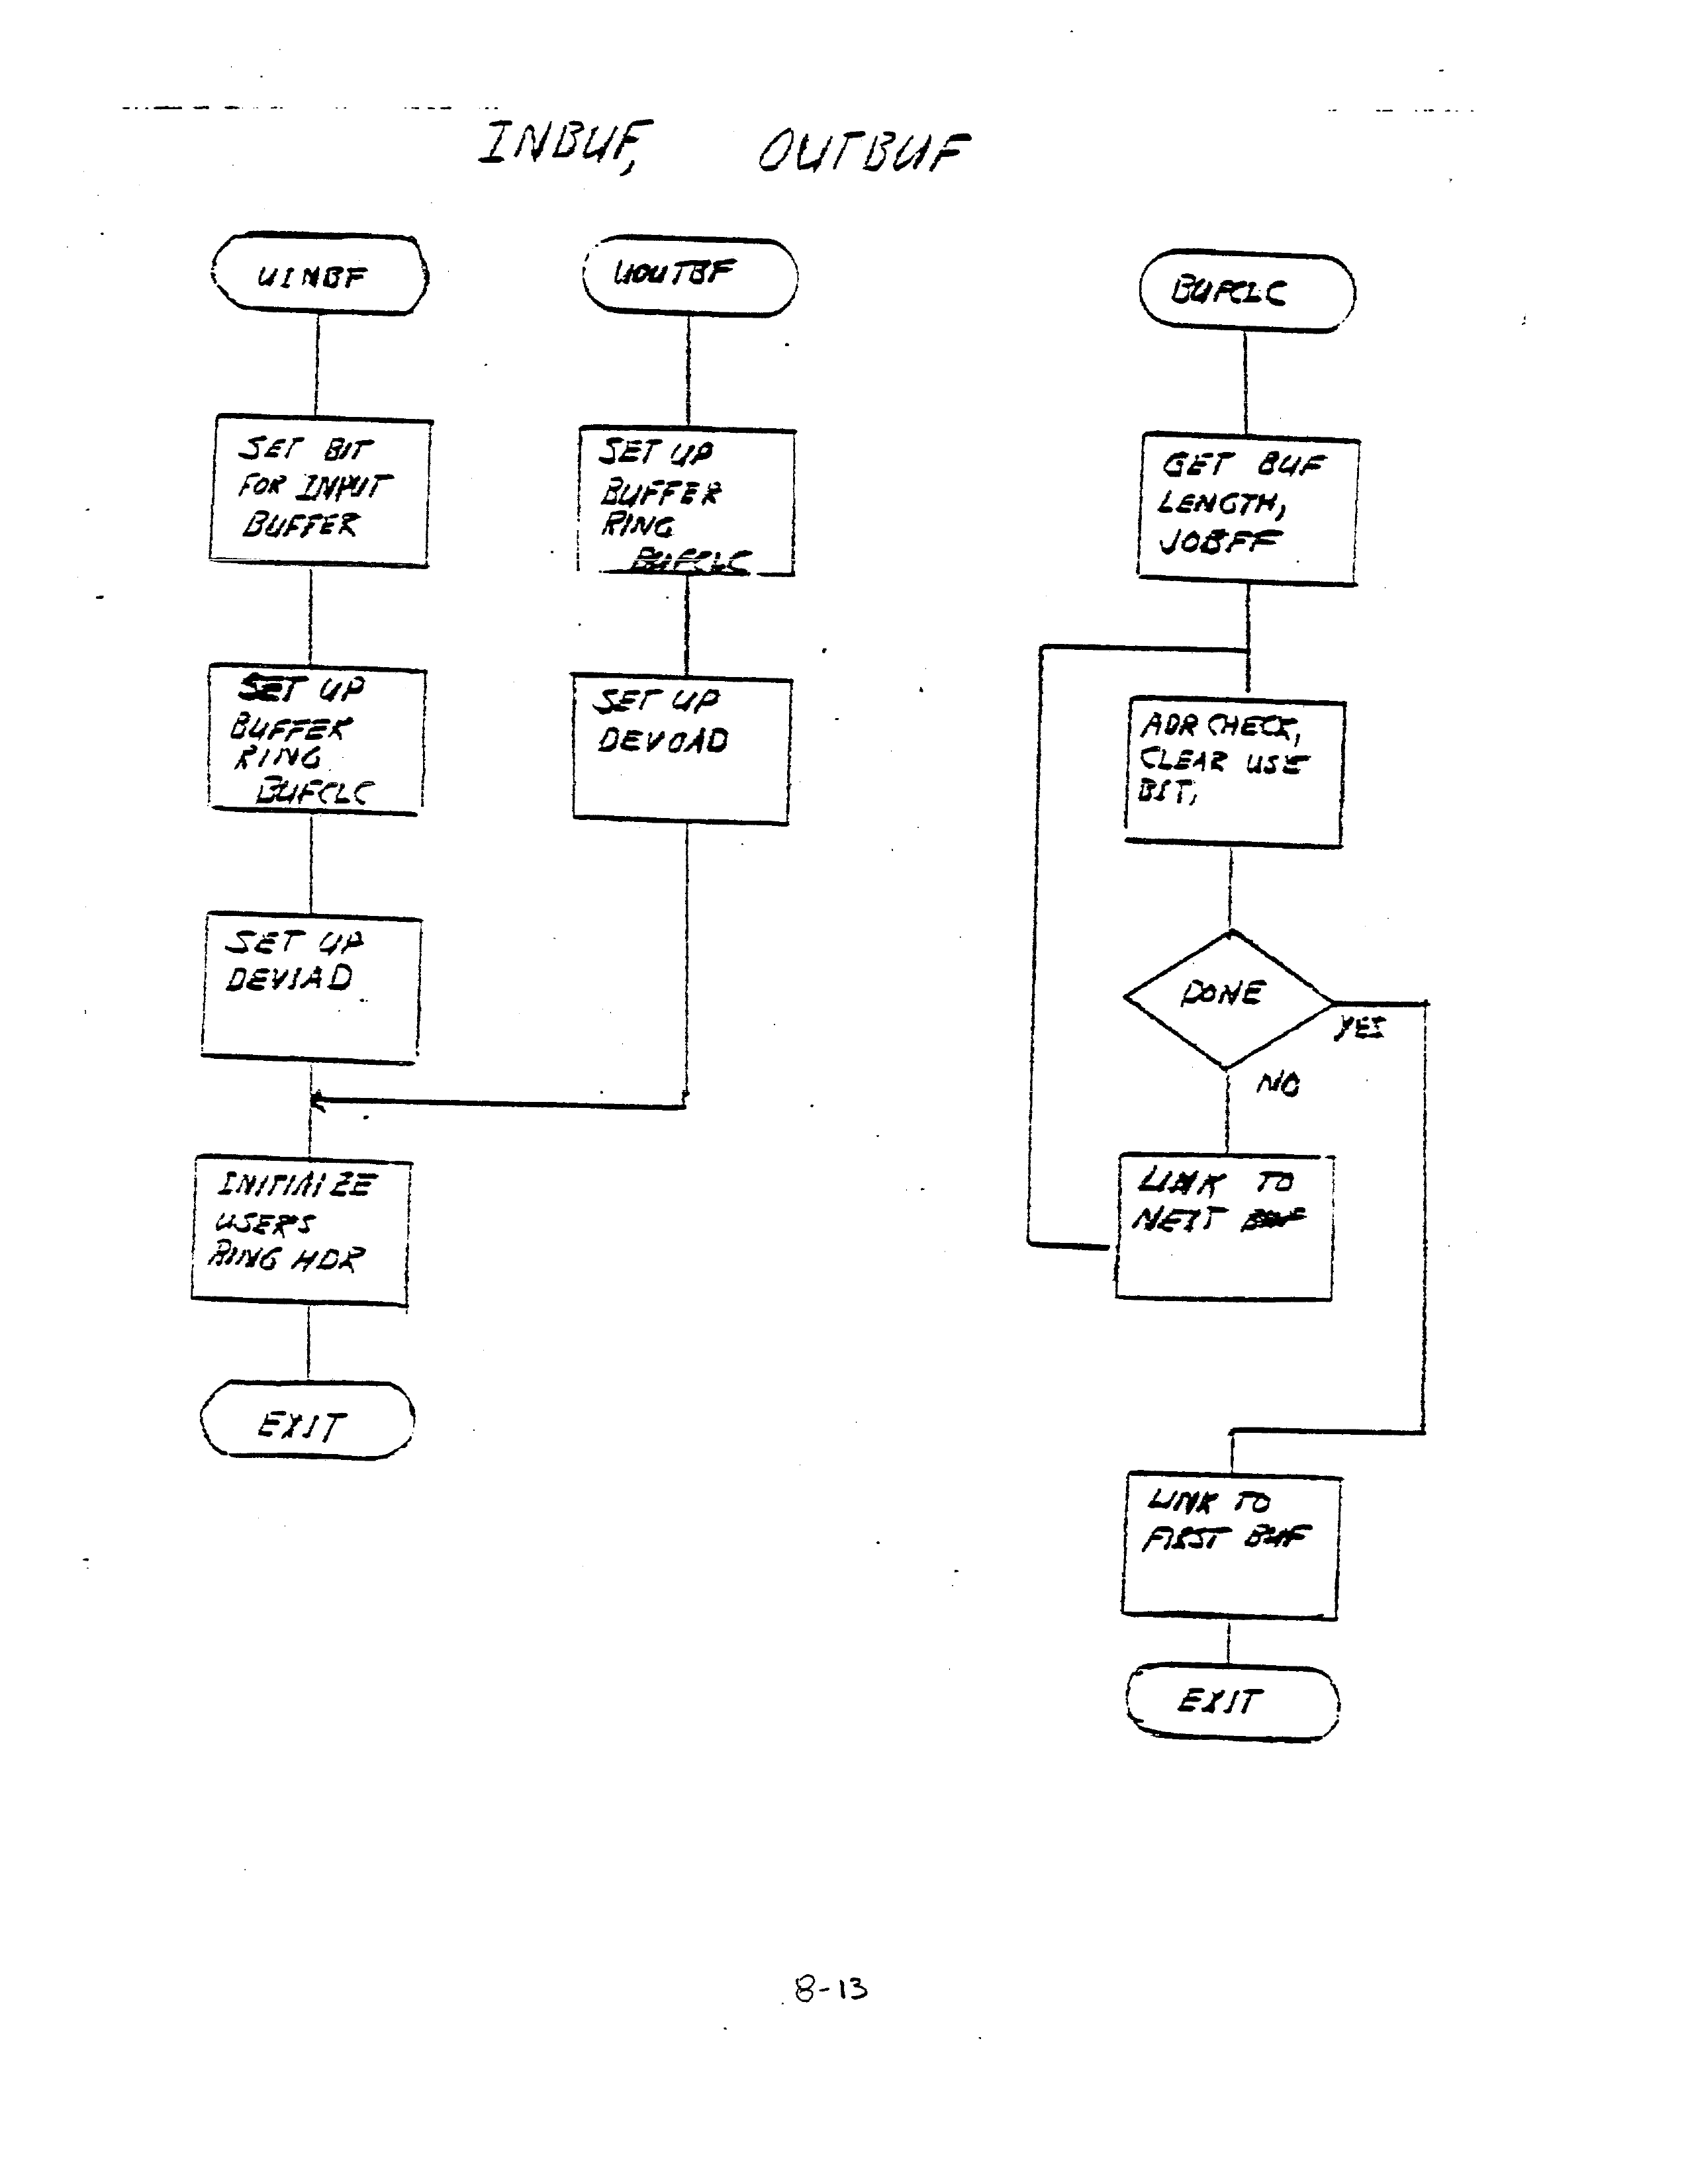 INBUF, OUTBUF
UINBF
SET BIT
FOR INPUT
BUFFER
SET UP
BUFFER
RING
BUFCLC
SET UP
DEVIAD
INITIALIZE
USER'S
RING HDR
EXIT
UOUTBF
SET UP
BUFFER
RING
BUFCLC
SET UP
DEVOAD
BUFCLC
GET BUF
LENGTH,
JOBFF
ADR CHECK,
CLEAR USE
BIT,
DONE
YES
NO
LINK TO
NEXT BUF
LINK TO
FIRST BUF
EXIT
8-13